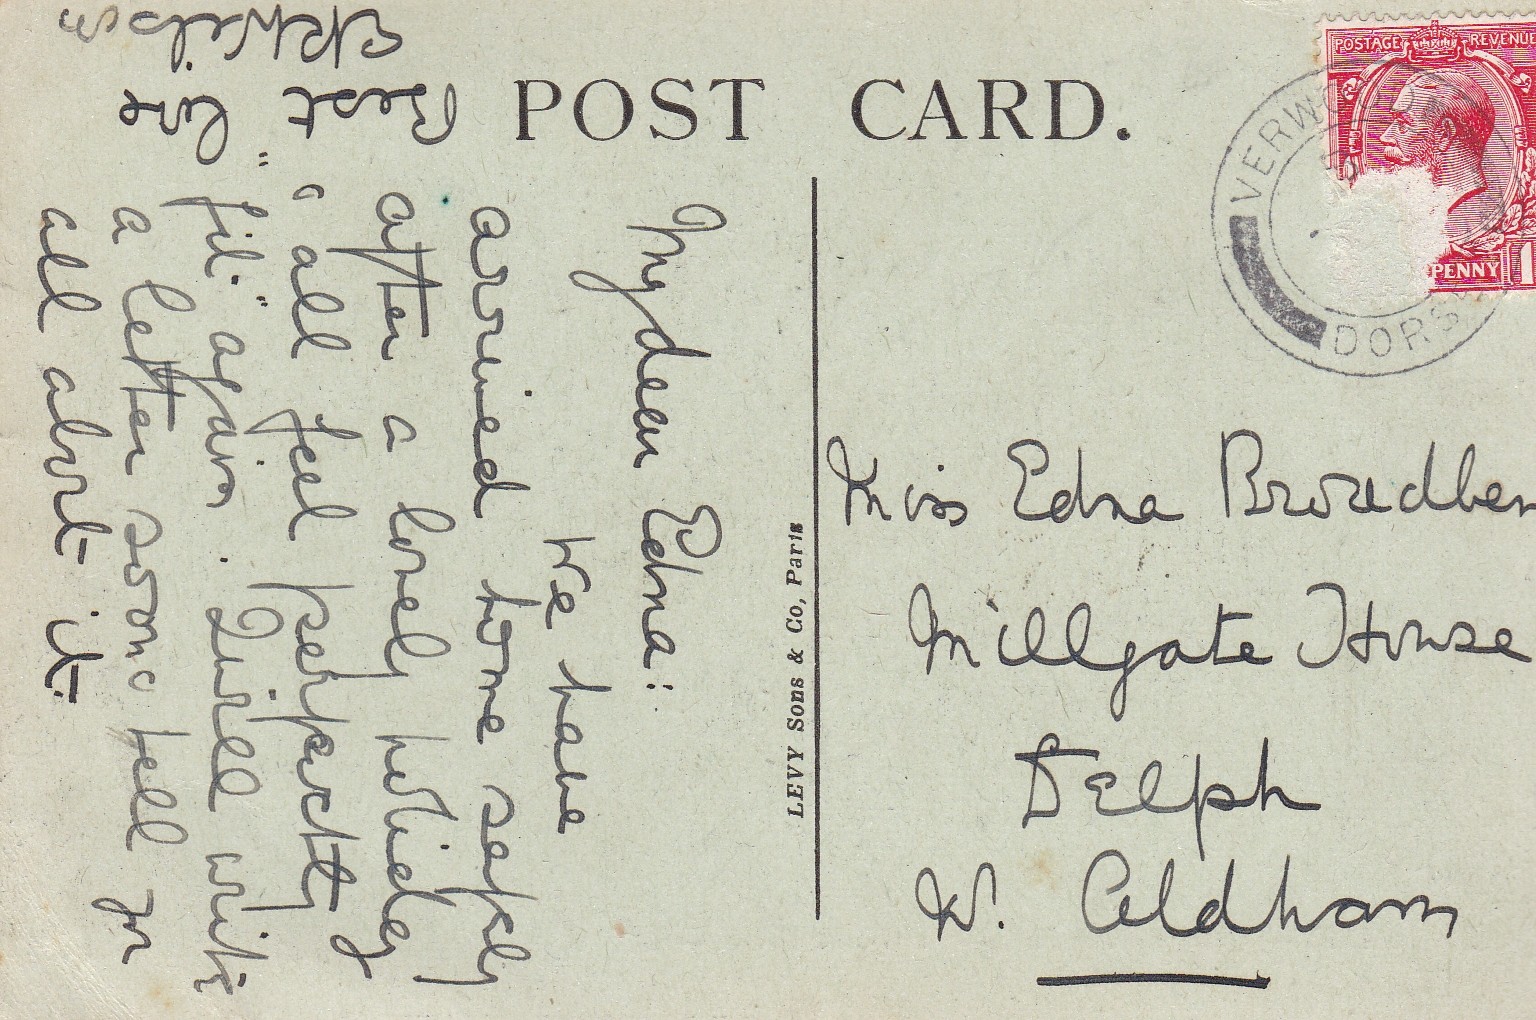 POST CARD.
POSTAGE REVENUE
PENNY 1
VERWOOD
DORS
LEVY Sons & Co, Paris
My dear Edna:
We have
arrived home safely
after a lovely holiday
& all feel perfectly
"fit" again. I will write
a letter soon & tell you
all about it.
Best love
Miss Edna Broadben
Millgate House
Delph
N. Oldham